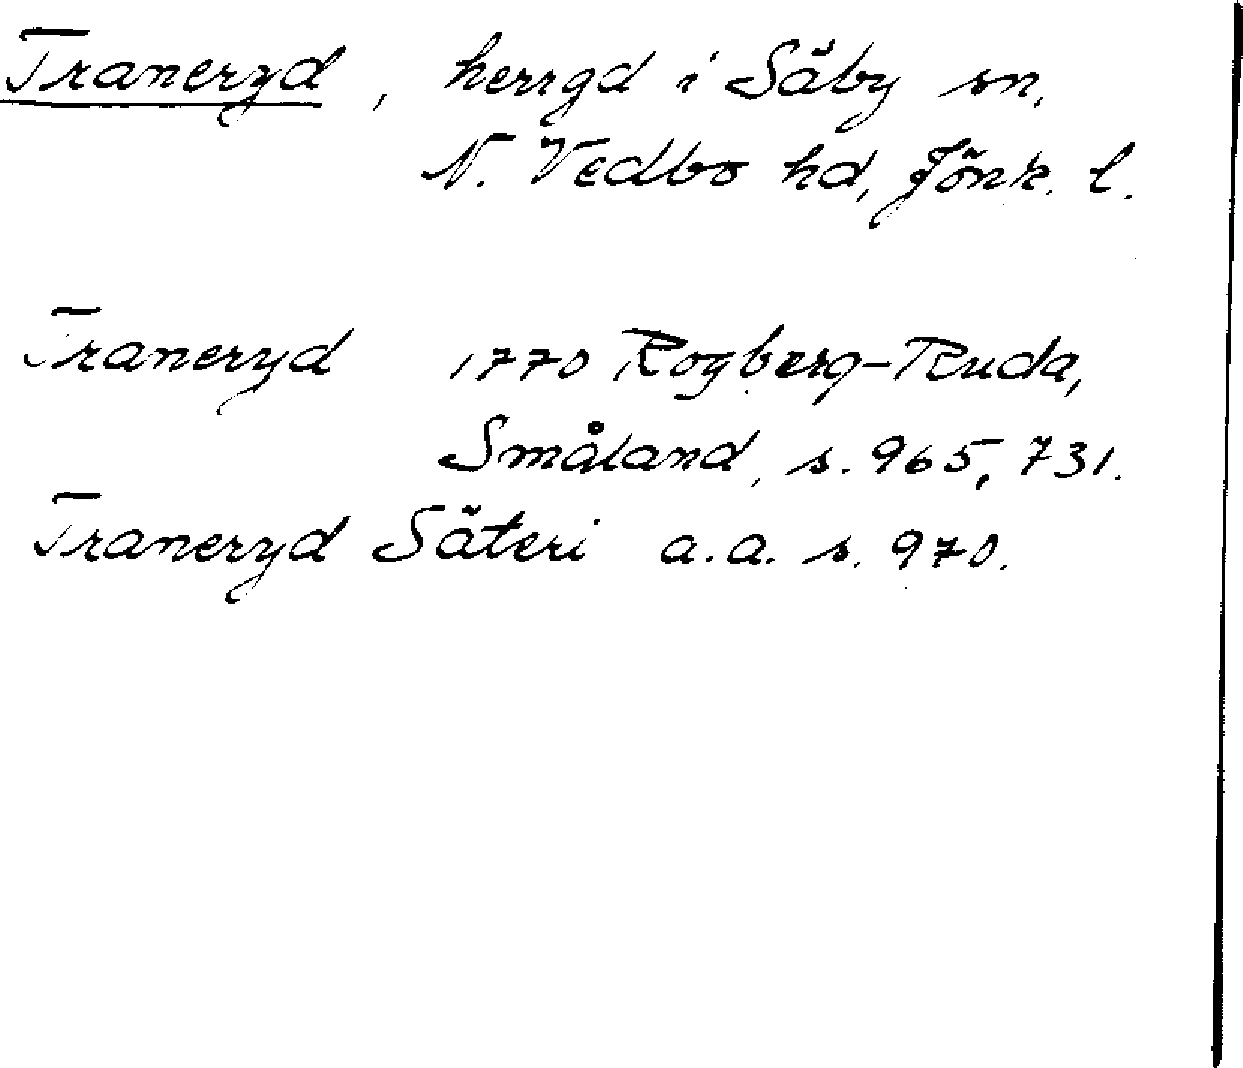 Traneryd, herrgd i Säby sn,
N. Vedbo hd, Jönk. l.
Traneryd 1770 Rogberg-Ruda,
Småland, s. 965, 731.
Traneryd Säteri a.a. s. 970.